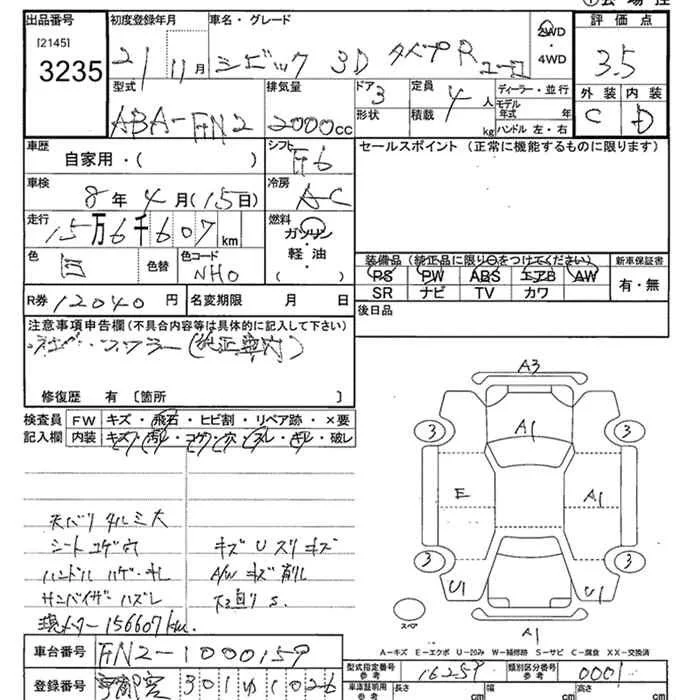 出品番号
[2145]
3235
初度登録年月
21 11月
車名・グレード
シビック 3D タイプR ユーロ
2WD
・4WD
評価点
3.5
外装 内装
C D
型式
ABA-FN2
排気量
2000cc
ドア
3
形状
定員
4人
積載
kg
ディーラー・並行
モデル年式 年
ハンドル 左・右
車歴
自家用・( )
シフト
F6
セールスポイント (正常に機能するものに限ります)
車検
8年4月(15日)
冷房
AC
走行
15万6千607km
燃料
ガソリン
・
軽油
( )
色
白
色替
色コード
NHO
装備品 (純正品に限り○をつけてください)
新車保証書
PS PW ABS エアB AW
SR ナビ TV カワ
有・無
R券 12040円
名変期限 月 日
後日品
注意事項申告欄(不具合内容等は具体的に記入して下さい)
マフラー(純正車内)
修復歴 有 〔箇所 〕
検査員記入欄
FW キズ・飛石・ヒビ割・リペア跡・×要
内装 キズ・汚レ・コゲ・穴・スレ・キレ・破レ
天バリ タルミ大
シート コゲ穴
キズ U スリキズ
ハンドル ハゲ・キレ
A/W キズ 削レ
サンバイザー ハズレ
下廻り S.
現メーター 156607km
A3
3
A1
3
E
A1
3
3
U1
U1
スペア
A1
A-キズ E-エクボ U-凹み W-補修跡 S-サビ C-腐食 XX-交換済
車台番号
FN2-1000159
型式指定番号 参考
16259
類別区分番号 参考
0001
登録番号
宇都宮 301 ゆ 1026
車庫証明用 参考
長さ cm
幅 cm
高さ cm